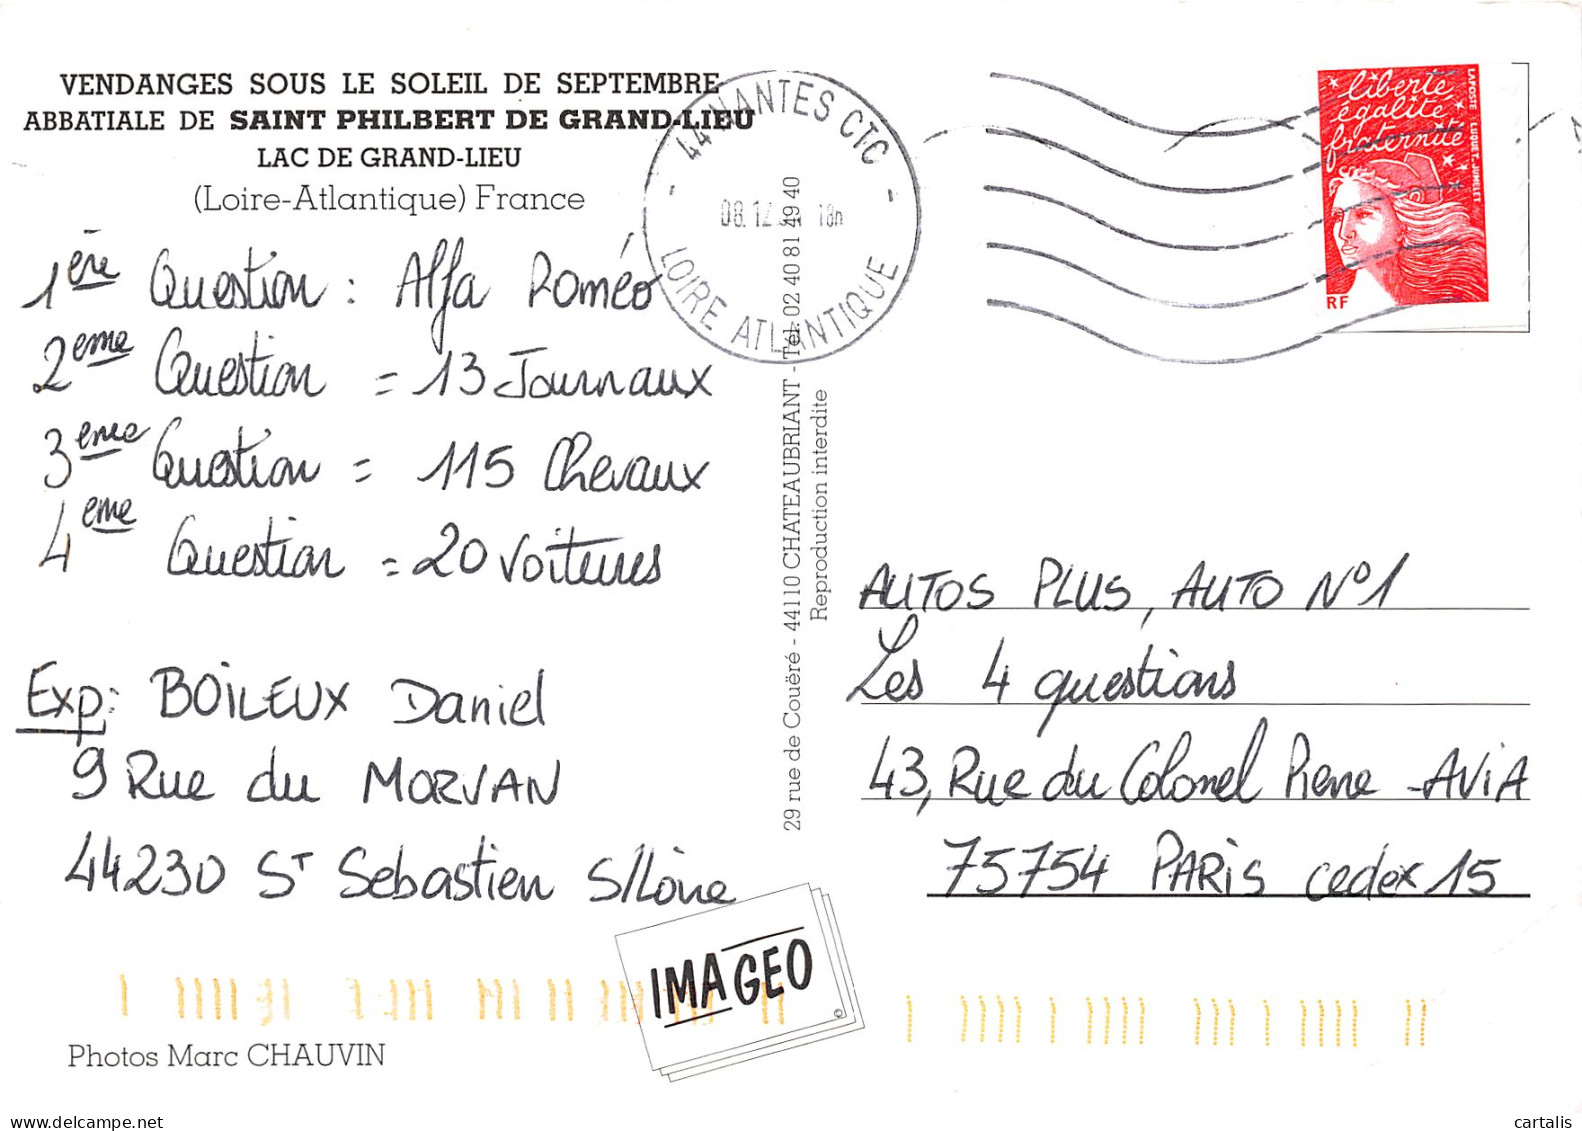 VENDANGES SOUS LE SOLEIL DE SEPTEMBRE
ABBATIALE DE SAINT PHILBERT DE GRAND-LIEU
LAC DE GRAND-LIEU
(Loire-Atlantique) France
1ère Question : Alfa Roméo
2eme Question = 13 Journaux
3eme Question = 115 Chevaux
4eme Question = 20 Voitures
Exp: BOILEUX Daniel
9 Rue du MORVAN
44230 ST Sebastien S/Loire
Photos Marc CHAUVIN
IMAGEO
©
29 rue de Couëré - 44110 CHATEAUBRIANT - Tél. 02 40 81 49 40
Reproduction interdite
44 NANTES CTC
08.12 18h
LOIRE ATLANTIQUE
liberté
égalité
fraternité
LA POSTE LUQUET-JUMELET
RF
AUTOS PLUS, AUTO N°1
Les 4 questions
43, Rue du Colonel Pierre-AViA
75754 PARIS cedex 15
www.delcampe.net
cartalis